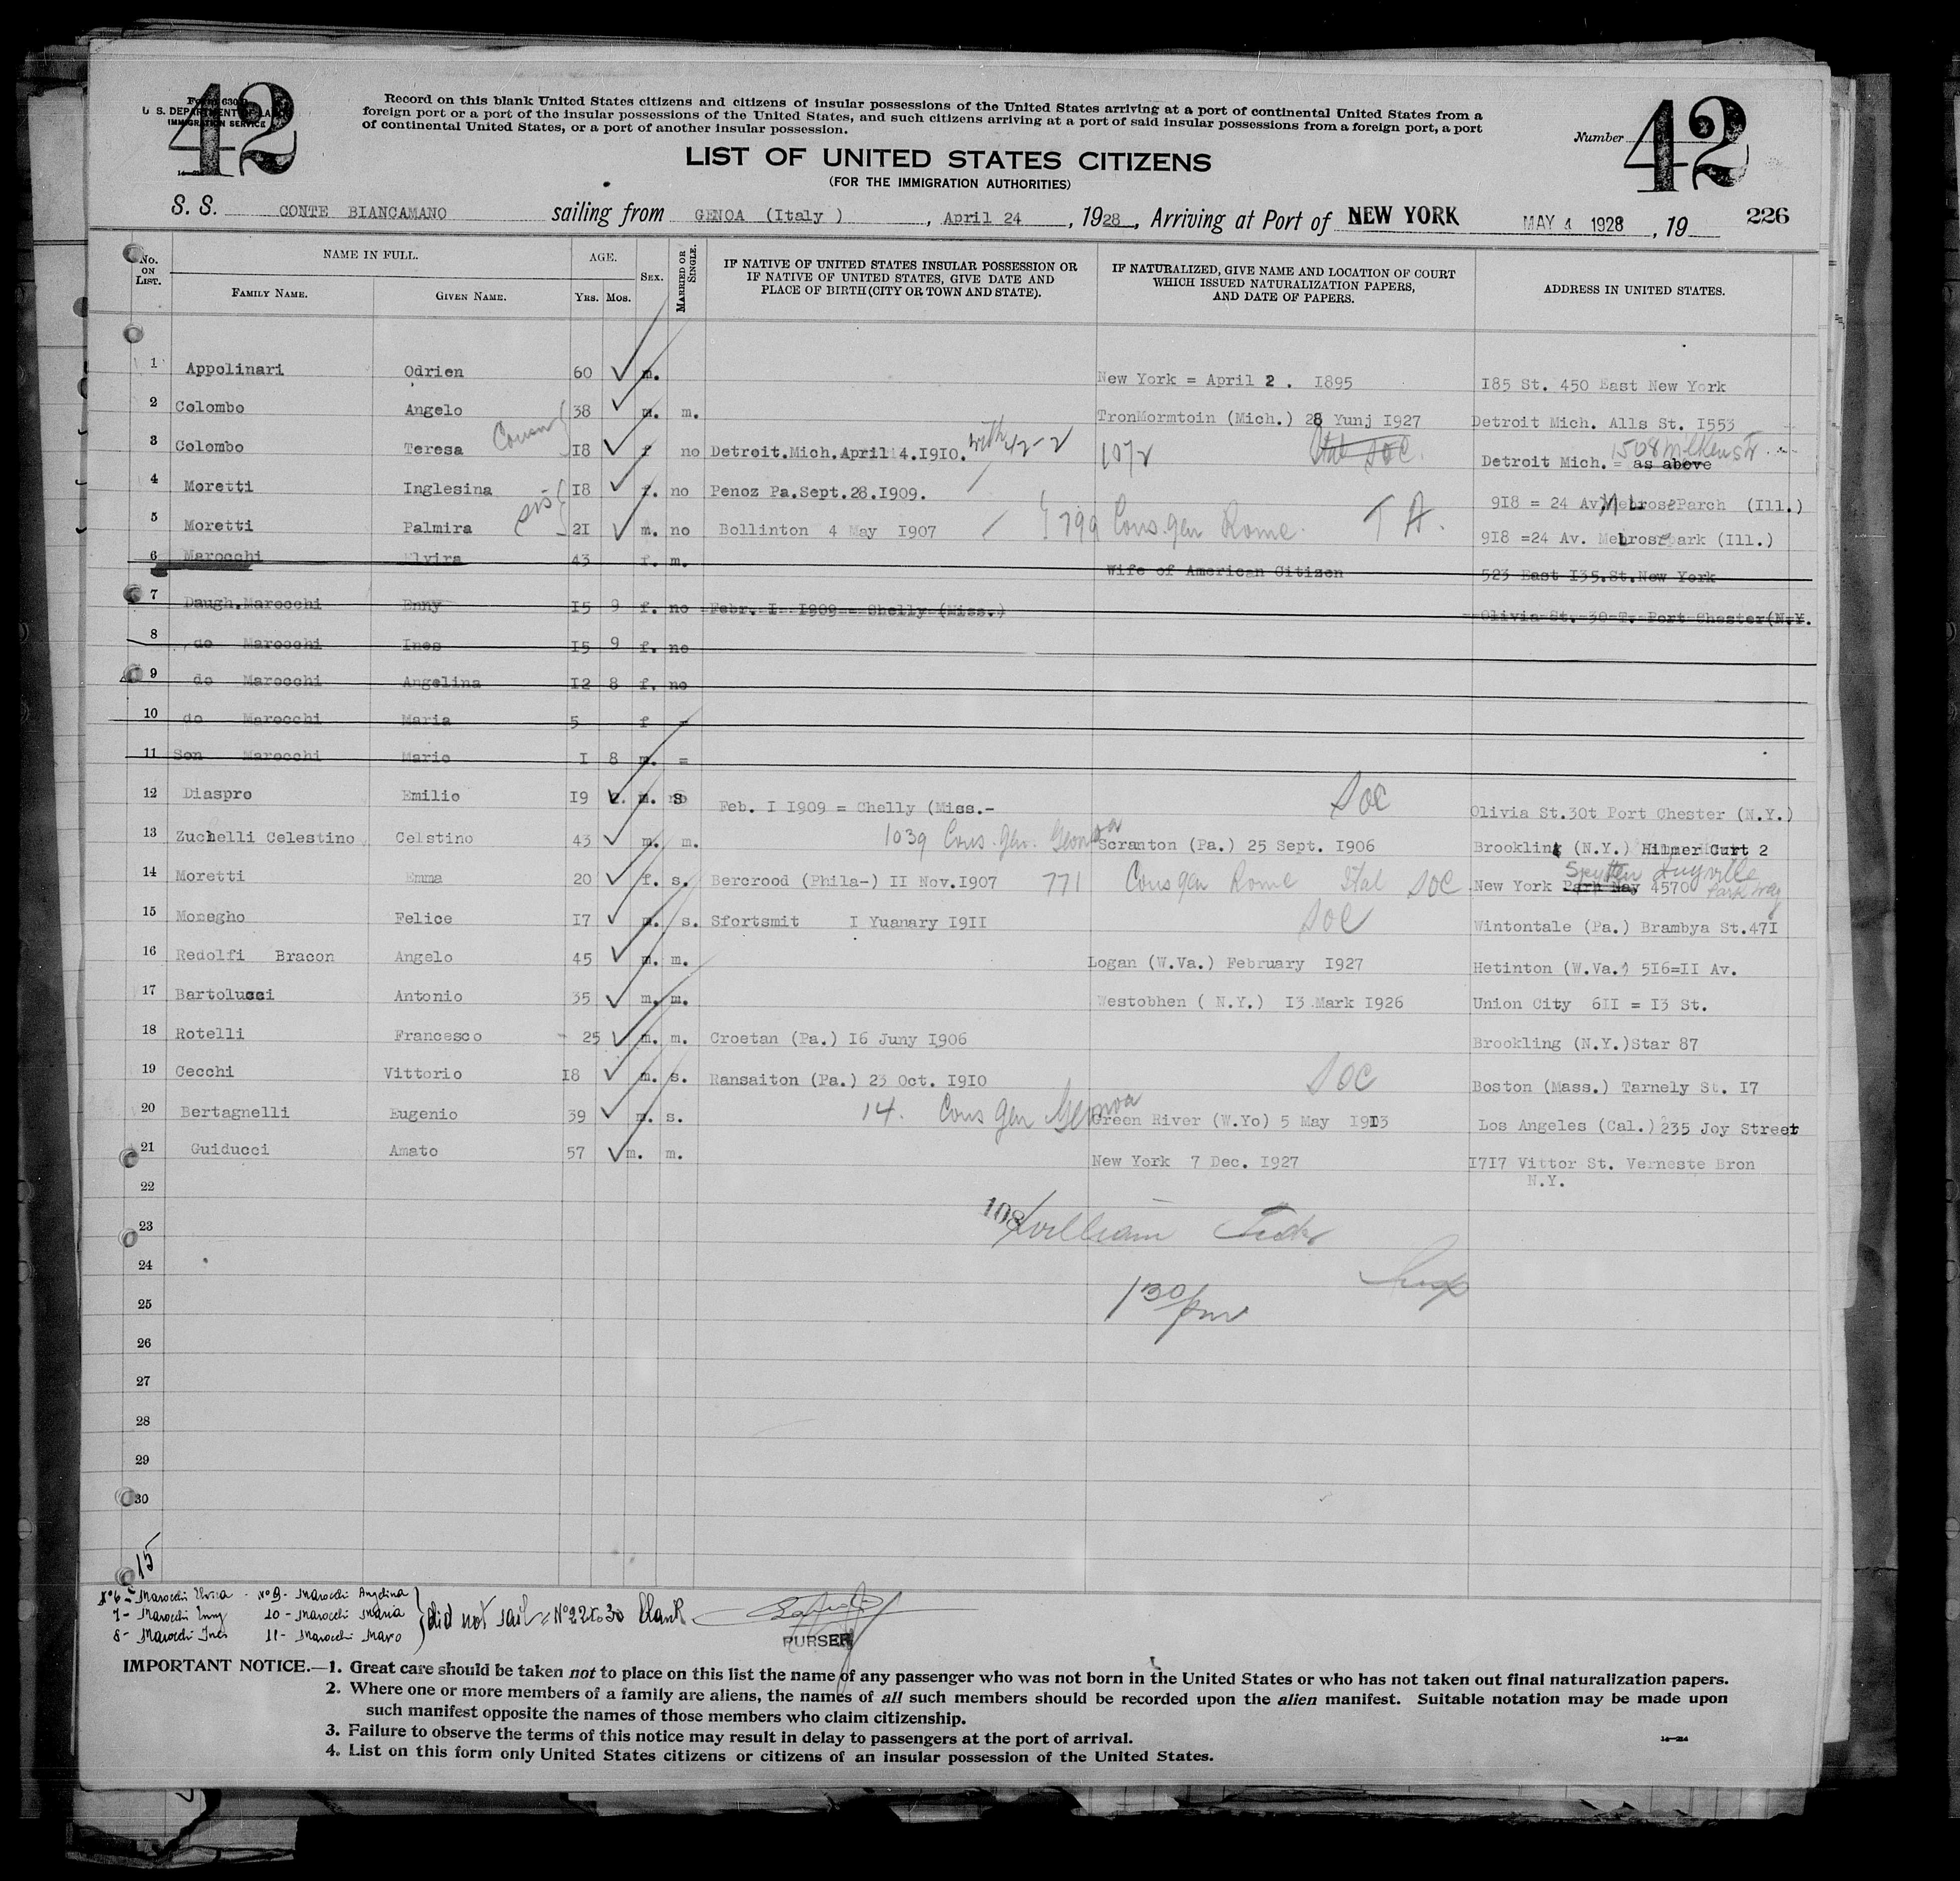 42
Form 630
U. S. DEPARTMENT OF LABOR
IMMIGRATION SERVICE
Record on this blank United States citizens and citizens of insular possessions of the United States arriving at a port of continental United States from a
foreign port or a port of the insular possessions of the United States, and such citizens arriving at a port of said insular possessions from a foreign port, a port
of continental United States, or a port of another insular possession.
Number 42
LIST OF UNITED STATES CITIZENS
(FOR THE IMMIGRATION AUTHORITIES)
S. S. CONTE BIANCAMANO sailing from GENOA (Italy ) , April 24 , 1928 , Arriving at Port of NEW YORK MAY 4 1928 , 19 226
No. ON LIST. NAME IN FULL. FAMILY NAME. GIVEN NAME. AGE. YRS. MOS. SEX. MARRIED OR SINGLE. IF NATIVE OF UNITED STATES INSULAR POSSESSION OR IF NATIVE OF UNITED STATES, GIVE DATE AND PLACE OF BIRTH (CITY OR TOWN AND STATE). IF NATURALIZED, GIVE NAME AND LOCATION OF COURT WHICH ISSUED NATURALIZATION PAPERS, AND DATE OF PAPERS. ADDRESS IN UNITED STATES.
1 Appolinari Odrien 60 m. New York = April 2 . I895 I85 St. 450 East New York
2 Colombo Angelo 38 m. m. TronMormtoin (Mich.) 28 Yunj I927 Detroit Mich. Alls St. I553
3 Colombo Teresa Cousin I8 f no Detroit.Mich.April 4.I9IO. with 42-2 1072 Ital SOC Detroit Mich. = as above 1508
4 Moretti Inglesina sis I8 f. no Penoz Pa.Sept.28.I909. 9I8 = 24 Av Melrose Parch (Ill.)
5 Moretti Palmira 2I m. no Bollinton 4 May I907 799 Cons. gen Rome. T A. 9I8 =24 Av. Melrose park (Ill.)
6 Marocchi Elvira 43 f. m. Wife of American Citizen 523 East I35.St.New York
7 Daugh.Marocchi Enny I5 9 f. no Febr. I I909 = Shelly (Miss.) Olivia St. 30 T. Port Chester(N.Y.
8 do Marocchi Ines I5 9 f. no
9 do Marocchi Angelina I2 8 f. no
10 do Marocchi Maria 5 f =
11 Son Marocchi Mario I 8 m. =
12 Diaspro Emilio I9 m. S Feb. I I909 = Chelly (Miss.- SOC Olivia St.30t Port Chester (N.Y.)
13 Zuchelli Celestino Celstino 43 m. m. 1039 Cons. gen. Genoa Scranton (Pa.) 25 Sept. I906 Brooklin (N.Y.) Hilmer Curt 2
14 Moretti Emma 20 f. s. Bercrood (Phila-) II Nov.I907 771 Cons gen Rome Ital SOC New York Park Way 4570 Spytten Duyville Park Way
15 Monegho Felice I7 m. s. Sfortsmit I Yuanary I9II SOC Wintontale (Pa.) Brambya St.47I
16 Redolfi Bracon Angelo 45 m. m. Logan (W.Va.) February I927 Hetinton (W.Va.) 5I6=II Av.
17 Bartolucci Antonio 35 m. m. Westobhen ( N.Y.) I3 Mark I926 Union City 6II = I3 St.
18 Rotelli Francesco 25 m. m. Croetan (Pa.) I6 Juny I906 Brookling (N.Y.)Star 87
19 Cecchi Vittorio I8 m. s. Ransaiton (Pa.) 23 Oct. I9IO SOC Boston (Mass.) Tarnely St. I7
20 Bertagnelli Eugenio 39 m. s. 14. Cons gen Genoa Green River (W.Yo) 5 May I9I3 Los Angeles (Cal.) 235 Joy Street
21 Guiducci Amato 57 m. m. New York 7 Dec. I927 I7I7 Vittor St. Verneste Bron
N.Y.
22
23 108 William
24
25 1 30 pm
26
27
28
29
30
15
No 6 - Marocchi Elvira - No 9 - Marocchi Angelina
7 - Marocchi Enny 10 - Marocchi Maria
8 - Marocchi Ines 11 - Marocchi Mario
did not sail = No 22 to 30 blank
PURSER
IMPORTANT NOTICE.—1. Great care should be taken not to place on this list the name of any passenger who was not born in the United States or who has not taken out final naturalization papers.
2. Where one or more members of a family are aliens, the names of all such members should be recorded upon the alien manifest. Suitable notation may be made upon
such manifest opposite the names of those members who claim citizenship.
3. Failure to observe the terms of this notice may result in delay to passengers at the port of arrival.
4. List on this form only United States citizens or citizens of an insular possession of the United States.
14—214